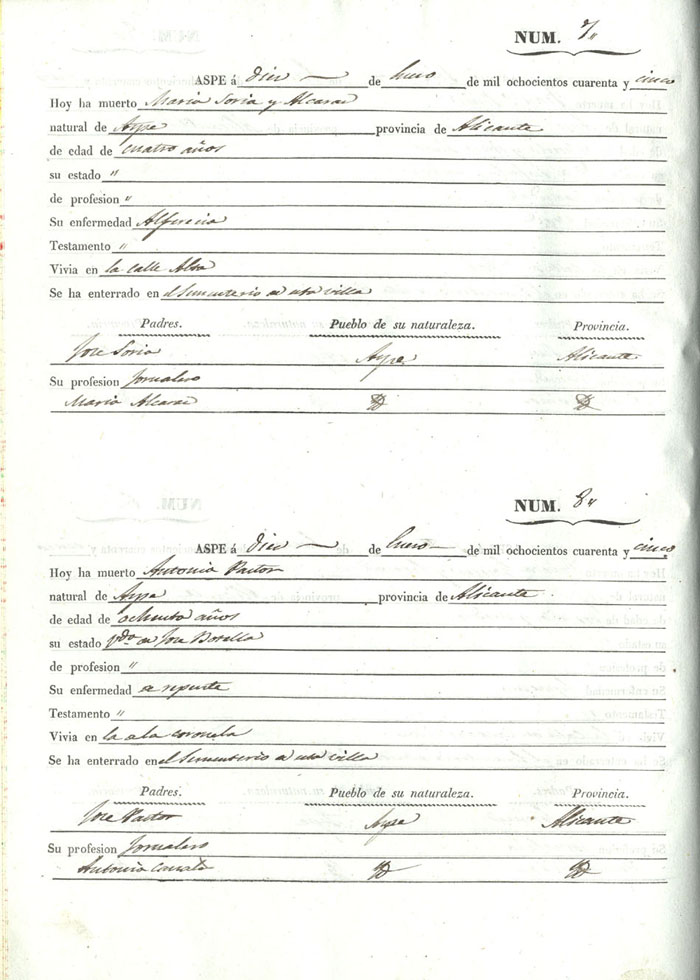 NUM. 7"
ASPE á diez de Enero de mil ochocientos cuarenta y cinco
Hoy ha muerto Maria Soria y Alcaraz
natural de Aspe provincia de Alicante
de edad de cuatro años
su estado "
de profesion "
Su enfermedad Alferecia
Testamento "
Vivia en la calle Alta
Se ha enterrado en el Sementerio de esta villa
Padres. Pueblo de su naturaleza. Provincia.
Jose Soria Aspe Alicante
Su profesion Jornalero
Maria Alcaraz
NUM. 8"
ASPE á diez de Enero de mil ochocientos cuarenta y cinco
Hoy ha muerto Antonia Pastor
natural de Aspe provincia de Alicante
de edad de ochenta años
su estado Vda. de Jose Botella
de profesion "
Su enfermedad de repente
Testamento "
Vivia en la
Se ha enterrado en el Sementerio de esta villa
Padres. Pueblo de su naturaleza. Provincia.
Jose Pastor Aspe Alicante
Su profesion Jornalero
Antonia